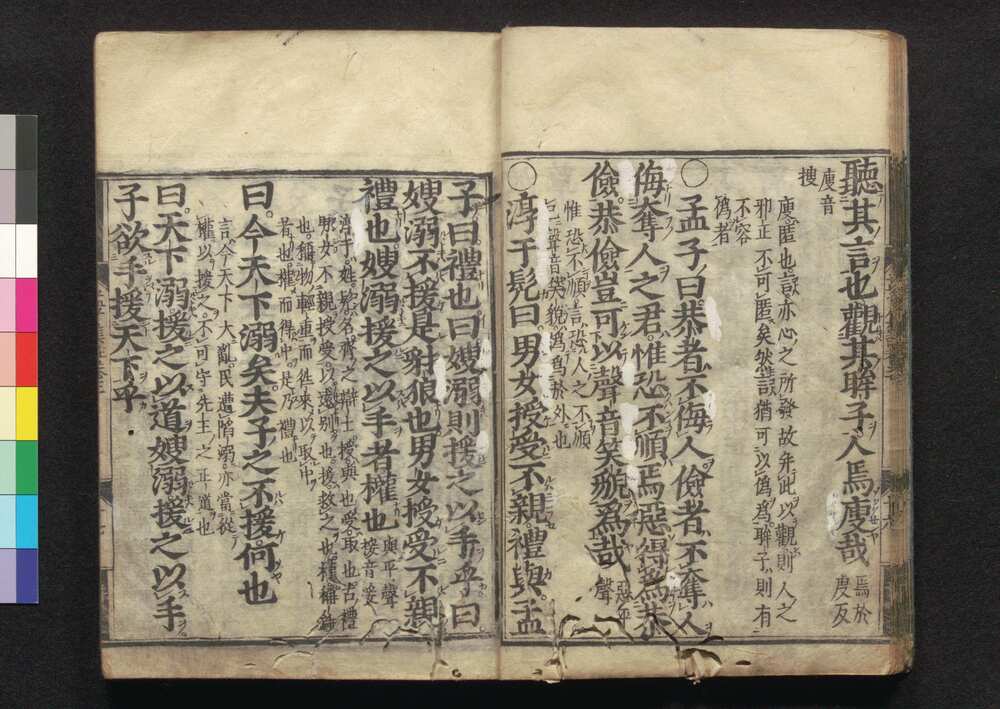 聽其言也觀其眸子人焉廋哉 焉於
廋反
廋音
搜
廋匿也言亦心之所發故幷此以觀則人之
邪正不可匿矣然言猶可以僞爲眸子則有
不容
僞者
○孟子曰恭者不侮人儉者不奪人
侮奪人之君惟恐不順焉惡得爲恭
儉恭儉豈可以聲音笑貌爲哉 惡平
聲
惟恐不順言恐人之不順
己聲音笑貌僞爲於外也
○淳于髡曰男女授受不親禮與孟
子曰禮也曰嫂溺則援之以手乎曰
嫂溺不援是豺狼也男女授受不親
禮也嫂溺援之以手者權也 與平聲
援音爰
淳于姓髡名齊之辯士授與也受取也古禮
男女不親授受以遠別也援救之也權稱錘
也稱物輕重而往來以取中
者也權而得中是乃禮也
曰今天下溺矣夫子之不援何也
言今天下大亂民遭陷溺亦當從
權以援之不可守先王之正道也
曰天下溺援之以道嫂溺援之以手
子欲手援天下乎